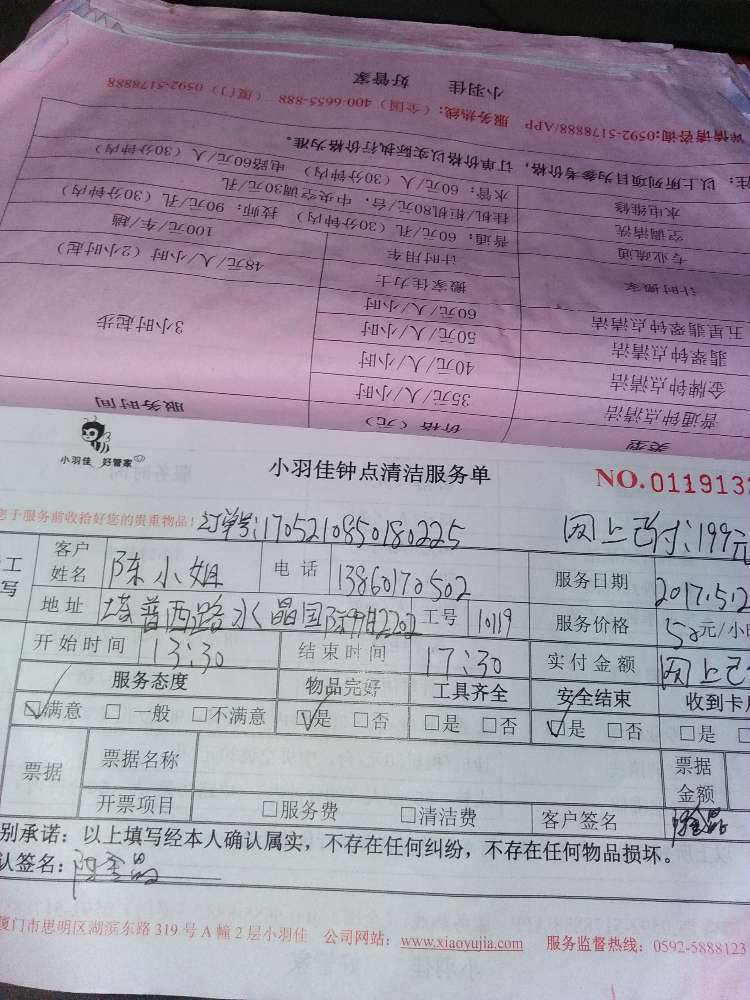 小羽佳 好管家
详情请咨询:0592-5178888/APP 服务热线:(全国)400-6655-888 (厦门)0592-5178888
类型 价格(元) 服务时间
普通钟点清洁 35元/人/小时
金牌钟点清洁 40元/人/小时
翡翠钟点清洁 50元/人/小时
五星翡翠钟点清洁 60元/人/小时
3小时起步
计时搬家 搬家佳力士 48元/人/小时(2小时起)
计时用车 100元/车/趟
专业疏通 普通:60元/孔(30分钟内) 技师:90元/孔(30分钟内)
空调清洗 挂机/柜机80元/台,中央空调30元/孔
水电维修 水管:60元/人(30分钟内) 电路60元/人(30分钟内)
注:以上所列项目为参考价格,订单价格以实际执行价格为准。
小羽佳 好管家
小羽佳钟点清洁服务单
NO.011913
您于服务前收拾好您的贵重物品!
订单号:1705210850180225 网上已付:199元
工 客户姓名 陈小姐 电话 13860170502 服务日期 2017.5.2
写 地址 塔普西路水晶国际9#2202 工号 10119 服务价格 50元/小
开始时间 13:30 结束时间 17:30 实付金额 网上已
服务态度 物品完好 工具齐全 安全结束 收到卡
☑满意 □一般 □不满意 ☑是 □否 □是 □否 ☑是 □否 □是
票据 票据名称 票据金额
开票项目 □服务费 □清洁费 客户签名
别承诺:以上填写经本人确认属实,不存在任何纠纷,不存在任何物品损坏。
认签名:
厦门市思明区湖滨东路 319 号 A 幢 2 层小羽佳 公司网站:www.xiaoyujia.com 服务监督热线:0592-5888123